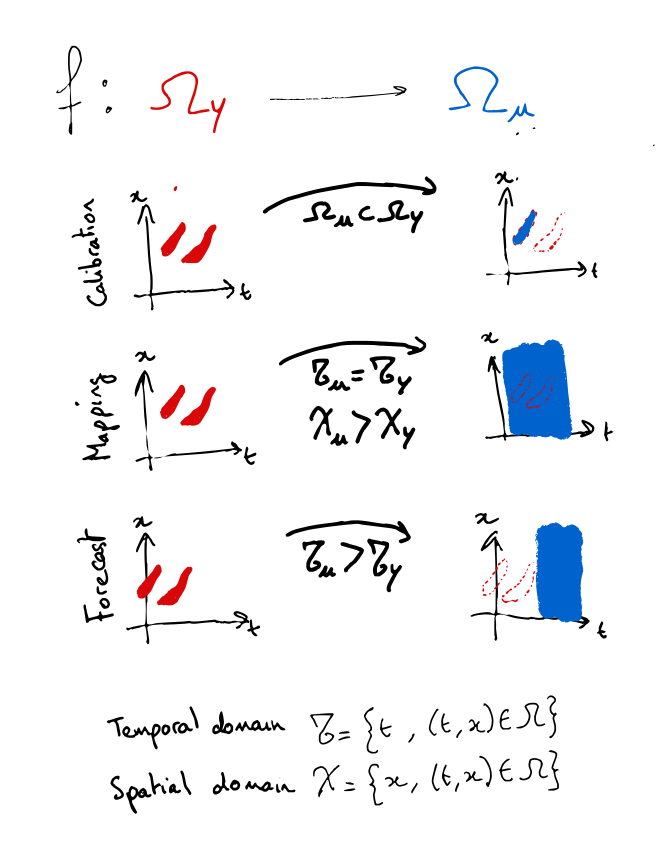 f : Ωy ⟶ Ωμ
x x
Calibration Ωμ ⊂ Ωy
t t
x x
Mapping 𝒯μ = 𝒯y
χμ > χy
t t
x x
Forecast 𝒯μ > 𝒯y
t t
Temporal domain 𝒯 = {t , (t,x) ∈ Ω}
Spatial domain χ = {x, (t,x) ∈ Ω}